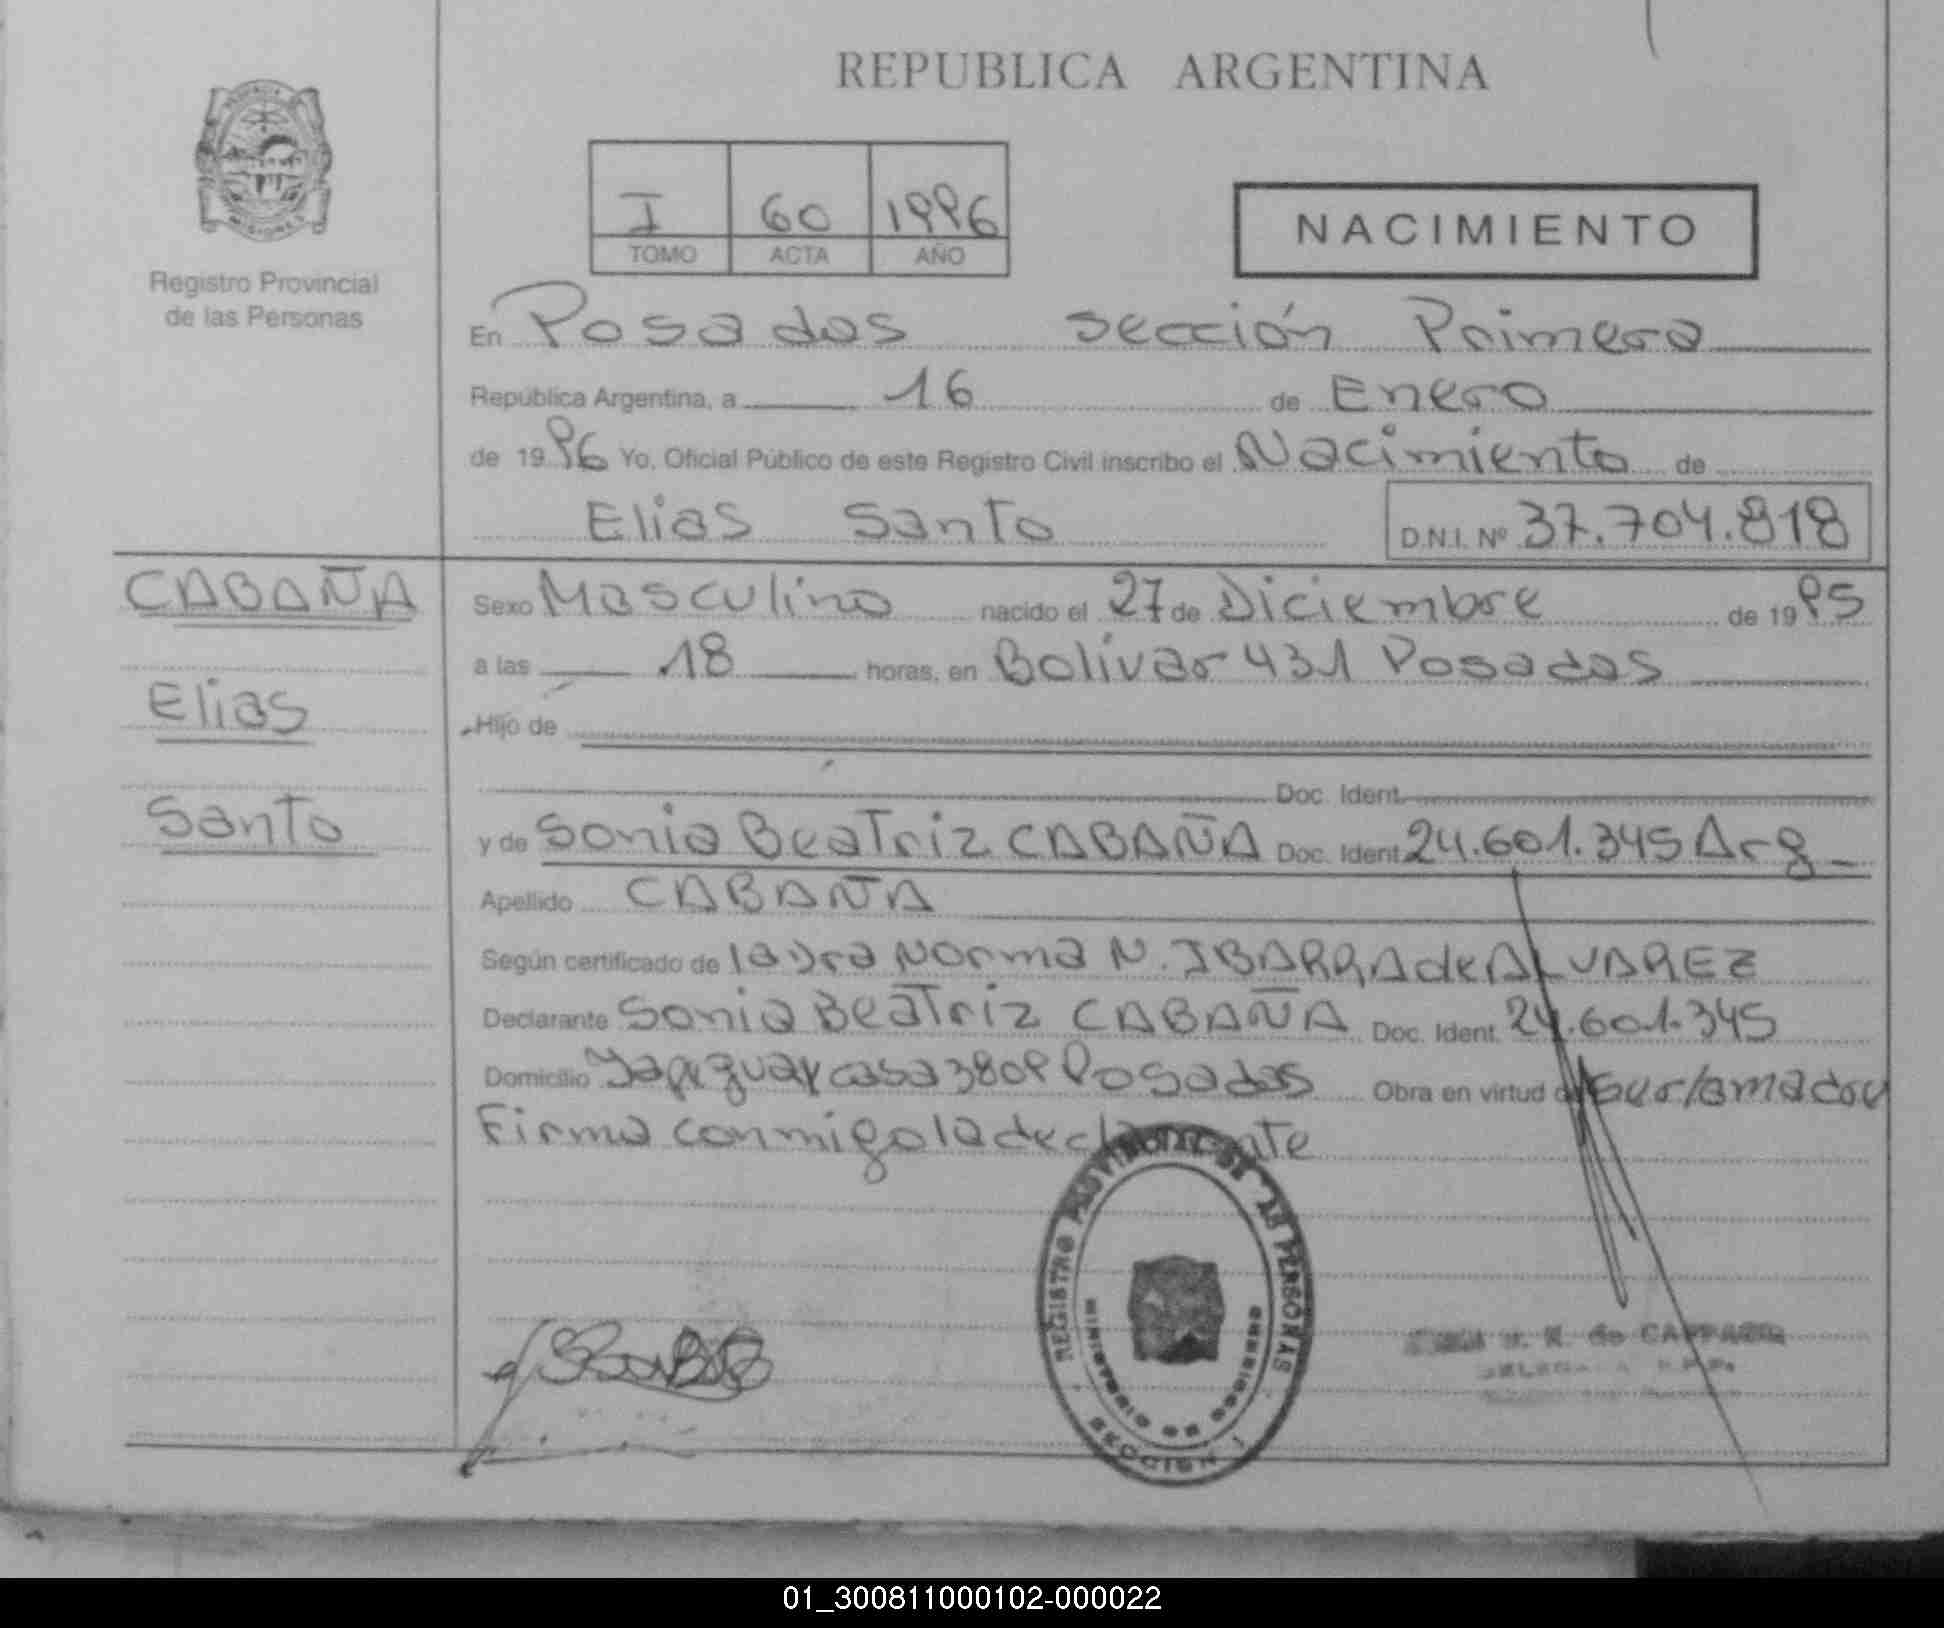 REPUBLICA ARGENTINA
Registro Provincial
de las Personas
I 60 1996
TOMO ACTA AÑO
NACIMIENTO
En Posadas sección Primera
República Argentina, a 16 de Enero
de 1996 Yo, Oficial Público de este Registro Civil inscribo el Nacimiento de
Elias Santo D.N.I. Nº 37.704.818
CABAÑA
Elias
Santo
Sexo Masculino nacido el 27 de Diciembre de 1995
a las 18 horas, en Bolívar 431 Posadas
Hijo de
Doc. Ident.
y de Sonia Beatriz CABAÑA Doc. Ident 24.601.345 Arg
Apellido CABAÑA
Según certificado de la Dra Norma N. IBARRA de ALVAREZ
Declarante Sonia Beatriz CABAÑA Doc. Ident. 24.601.345
Domicilio casa 3809 Posadas Obra en virtud
Firma conmigo la declarante
REGISTRO PROVINCIAL DE LAS PERSONAS
MINISTERIO DE GOBIERNO
SECCION 1
01_300811000102-000022